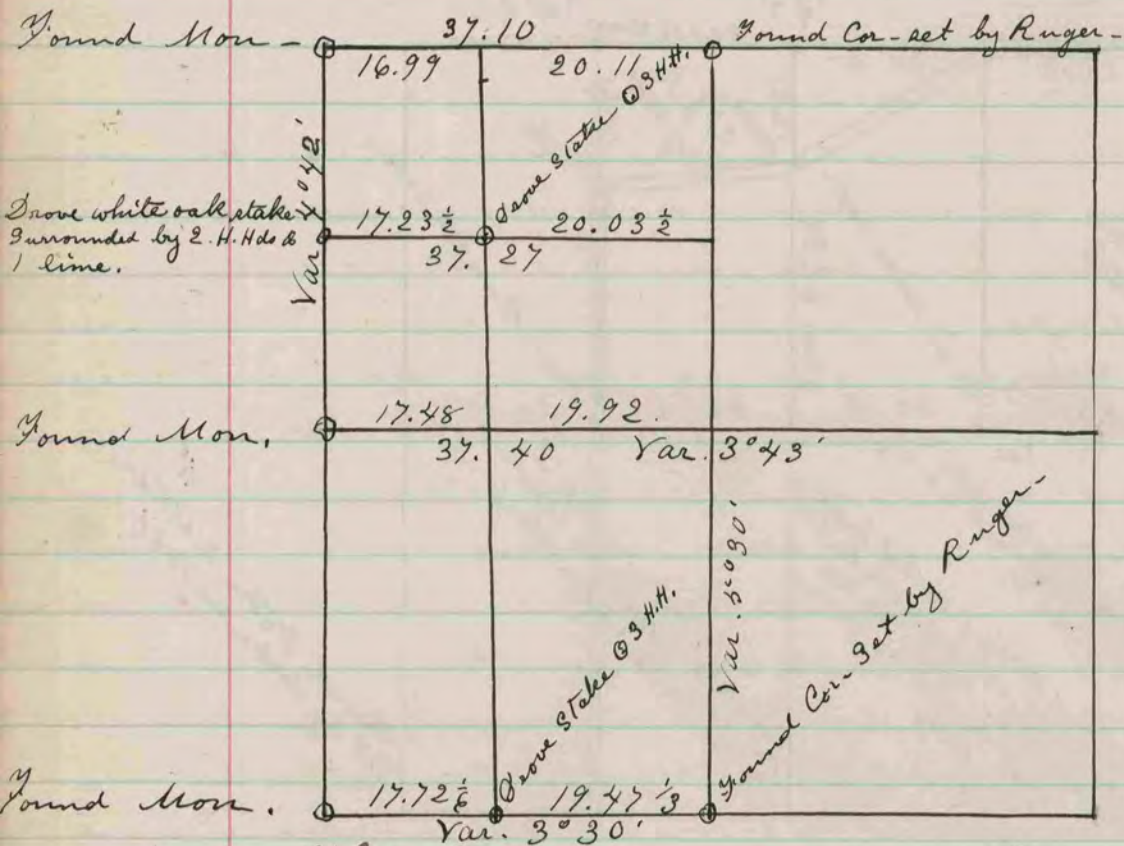 Found Mon -
37.10
Found Cor - set by Ruger -
16.99
20.11
Drove Statke ⊙ 3 H.H.
Var 4°42'
Drove white oak stake
surrounded by 2. H. Hds &
1 lime.
17.23 1/2
20.03 1/2
37. 27
Found Mon.
17.48
19.92.
37. 40
Var. 3°43'
Var. 5°30'
Drove Stake ⊙ 3 H.H.
Found Cor - Set by Ruger -
Found Mon.
17.72 1/6
19.47 1/3
Var. 3°30'